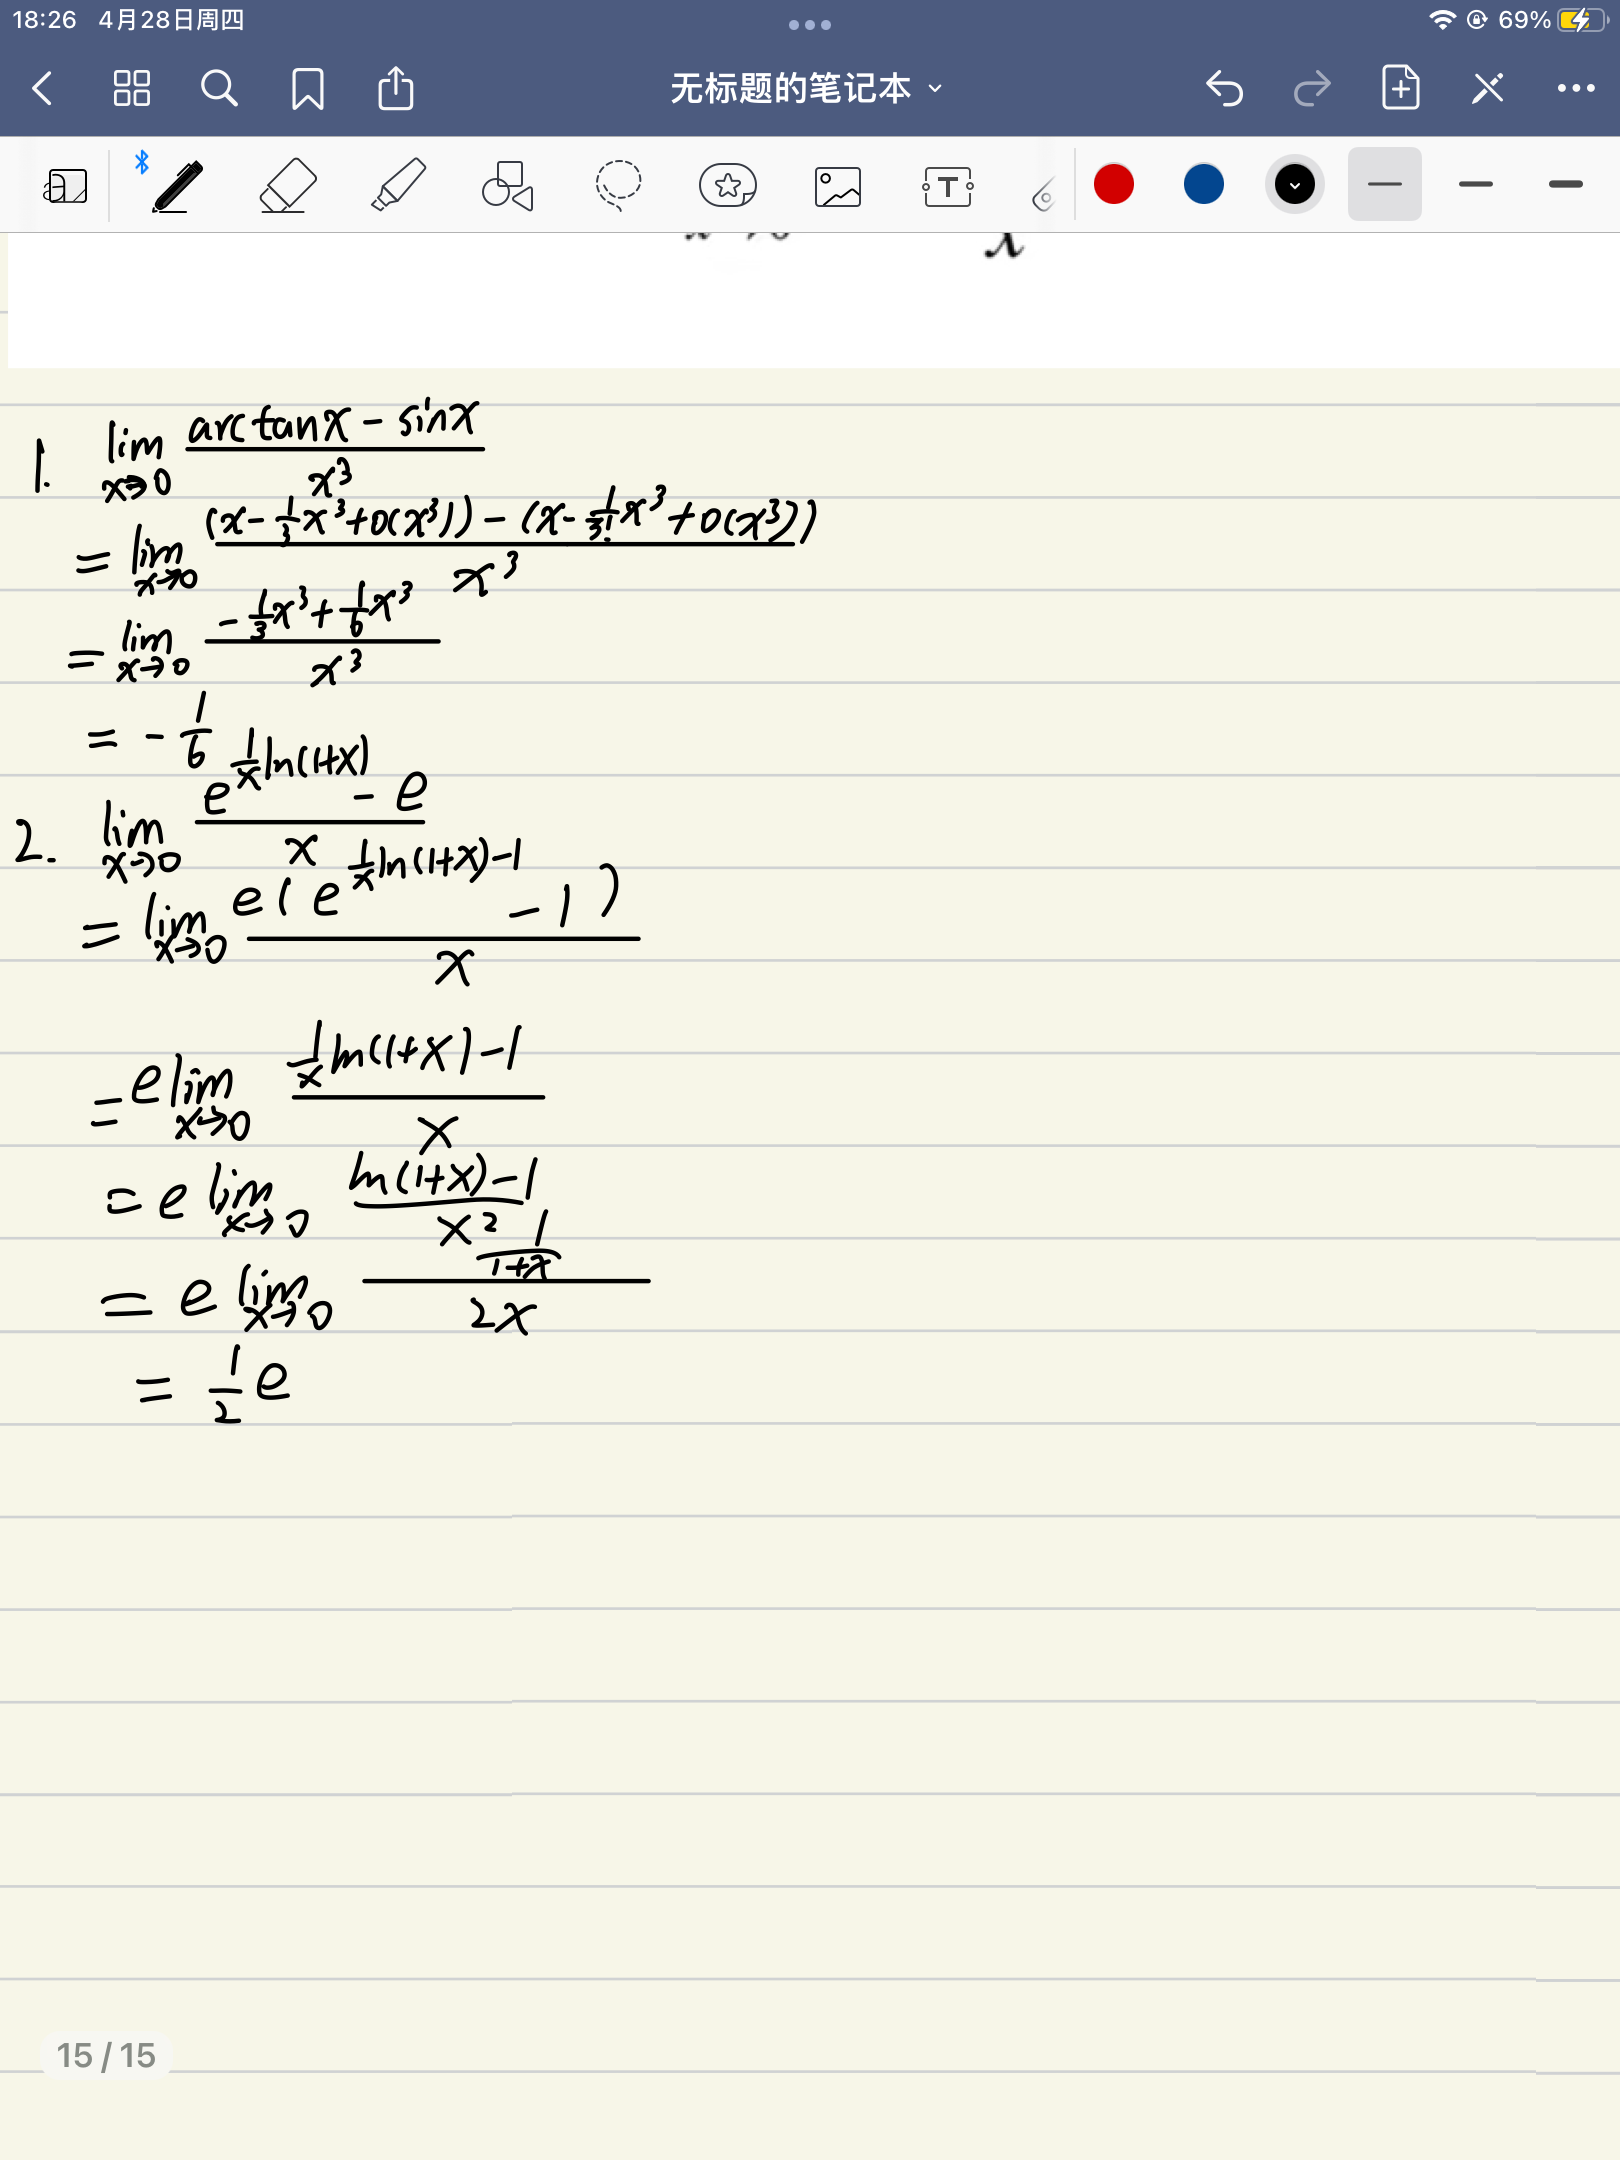 18:26 4月28日周四 69%
无标题的笔记本
T
x
1. lim x→0 (arctanx - sinx)/x³
= lim x→0 ((x - 1/3 x³ + o(x³)) - (x - 1/3! x³ + o(x³)))/x³
= lim x→0 (-1/3 x³ + 1/6 x³)/x³
= -1/6
2. lim x→0 (e^(1/x ln(1+x)) - e)/x
= lim x→0 e(e^(1/x ln(1+x)-1) - 1)/x
= e lim x→0 (1/x ln(1+x) - 1)/x
= e lim x→0 (ln(1+x) - 1)/x²
= e lim x→0 (1/(1+x))/2x
= 1/2 e
15 / 15